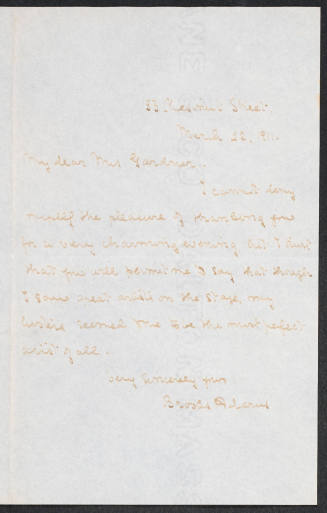 53 Chestnut Street
March 22, 1911.
My dear Mrs Gardner.
I cannot deny
myself the pleasure of thanking you
for a very charming evening. And I trust
that you will permit me to say that though
I saw great artists on the stage, my
hostess seemed to me to be the most perfect
artist of all.
Very sincerely yours
Brooks Adams